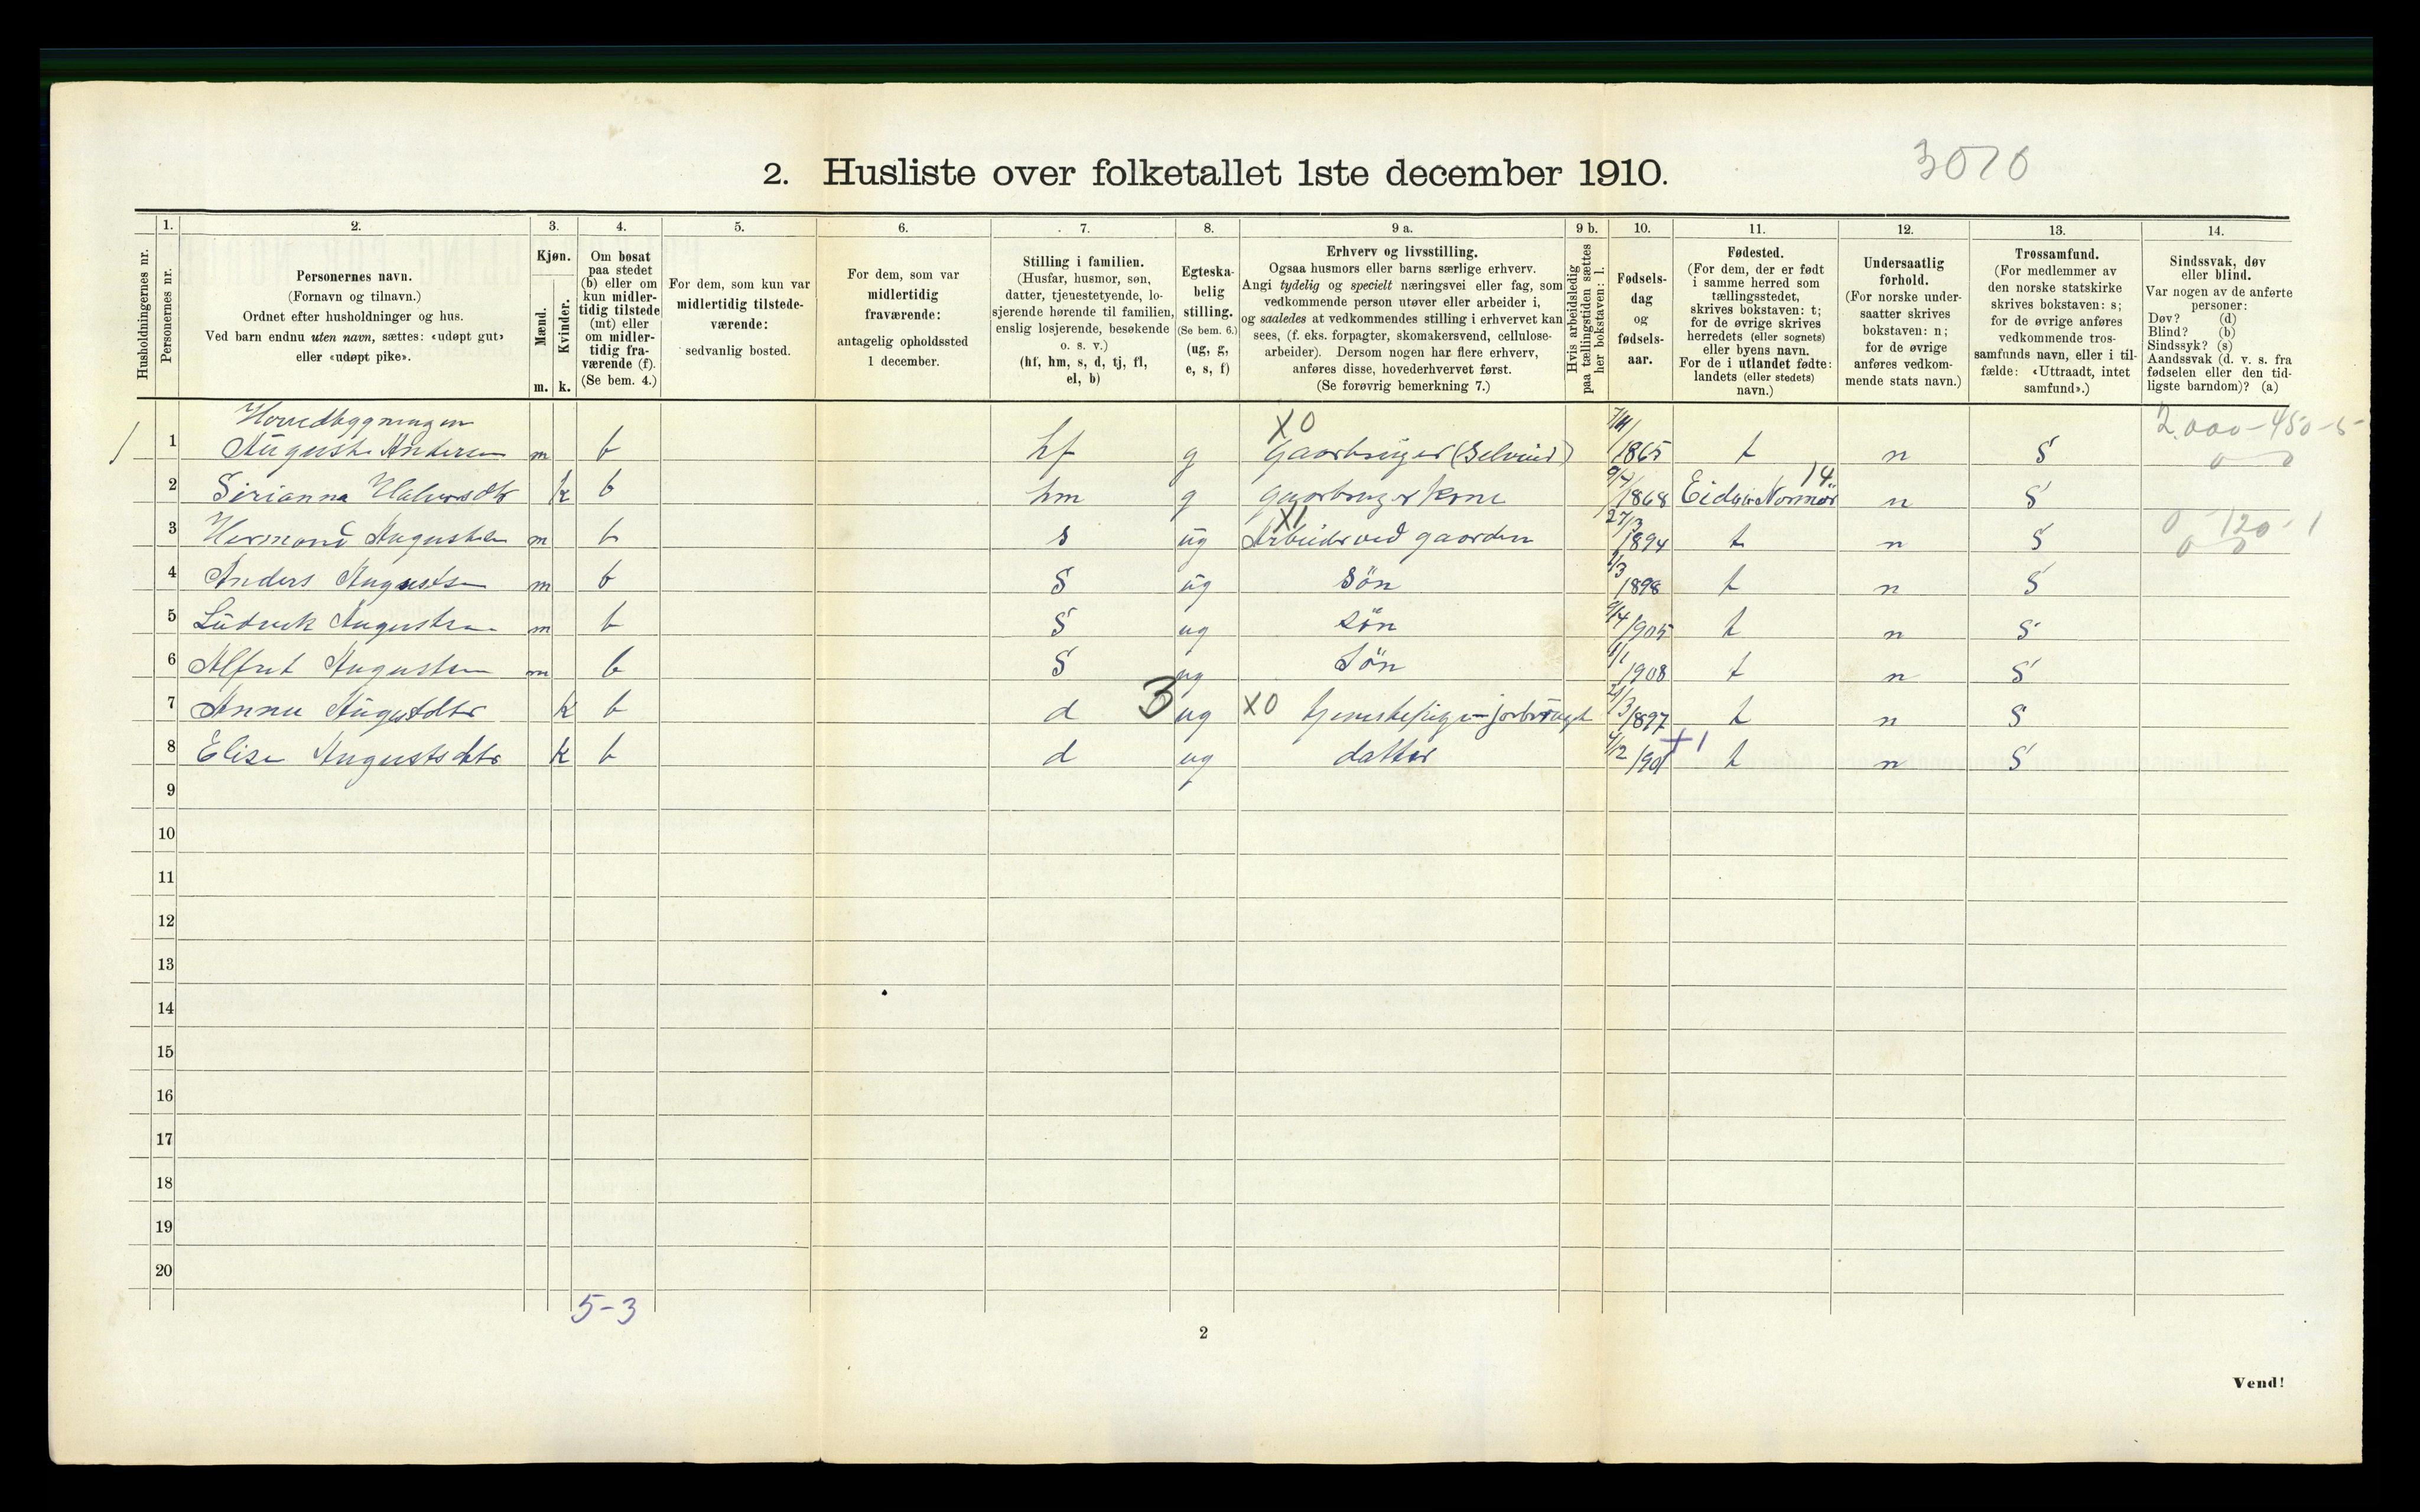 2. Husliste over folketallet 1ste december 1910.
3070
Husholdningernes nr.
1.
Personernes nr.
2.
Personernes navn.
(Fornavn og tilnavn.)
Ordnet efter husholdninger og hus.
Ved barn endnu uten navn, sættes: «udøpt gut»
eller «udøpt pike».
3.
Kjøn.
Mænd.
Kvinder.
m. k.
4.
Om bosat
paa stedet
(b) eller om
kun midler-
tidig tilstede
(mt) eller
om midler-
tidig fra-
værende (f).
(Se bem. 4.)
5.
For dem, som kun var
midlertidig tilstede-
værende:
sedvanlig bosted.
6.
For dem, som var
midlertidig
fraværende:
antagelig opholdssted
1 december.
7.
Stilling i familien.
(Husfar, husmor, søn,
datter, tjenestetyende, lo-
sjerende hørende til familien,
enslig losjerende, besøkende
o. s. v.)
(hf, hm, s, d, tj, fl,
el, b)
8.
Egteska-
belig
stilling.
(Se bem. 6.)
(ug, g,
e, s, f)
9 a.
Erhverv og livsstilling.
Ogsaa husmors eller barns særlige erhverv.
Angi tydelig og specielt næringsvei eller fag, som
vedkommende person utøver eller arbeider i,
og saaledes at vedkommendes stilling i erhvervet kan
sees, (f. eks. forpagter, skomakersvend, cellulose-
arbeider). Dersom nogen har flere erhverv,
anføres disse, hovederhvervet først.
(Se forøvrig bemerkning 7.)
9 b.
Hvis arbeidsledig
paa tællingstiden sættes
her bokstaven: l.
10.
Fødsels-
dag
og
fødsels-
aar.
11.
Fødested.
(For dem, der er født
i samme herred som
tællingsstedet,
skrives bokstaven: t;
for de øvrige skrives
herredets (eller sognets)
eller byens navn.
For de i utlandet fødte:
landets (eller stedets)
navn.)
12.
Undersaatlig
forhold.
(For norske under-
saatter skrives
bokstaven: n;
for de øvrige
anføres vedkom-
mende stats navn.)
13.
Trossamfund.
(For medlemmer av
den norske statskirke
skrives bokstaven: s;
for de øvrige anføres
vedkommende tros-
samfunds navn, eller i til-
fælde: «Uttraadt, intet
samfund».)
14.
Sindssvak, døv
eller blind.
Var nogen av de anførte
personer:
Døv? (d)
Blind? (b)
Sindssyk? (s)
Aandssvak (d. v. s. fra
fødselen eller den tid-
ligste barndom)? (a)
Hovedbyggningen XO 2.000-450-5
1 August Andersen m b hf g Gaardbruger (Selveier) 1865 t n S
2 Sirianna Halvorsdtr k b hm g gaardbruger kone 1868 14 n S
3 m b s ug X1 Arbeider ved gaarden 27/3 1894 t n S 0-120-1
4 Anders Augustsen m b S ug Sön 1898 t n S
5 Ludvik Augustsen m b S ug Sön 9/4 1905 t n S
6 Alfret Augustsen m b S ug Sön 1/1 1908 t n S
7 Anna Augustdtr k b d 3 ug XO 1897 t n S
8 Elise Augustsdtr k b d ug datter 4/12 1901 +1 t n S
9
10
11
12
13
14
15
16
17
18
19
20
5-3
2
Vend!